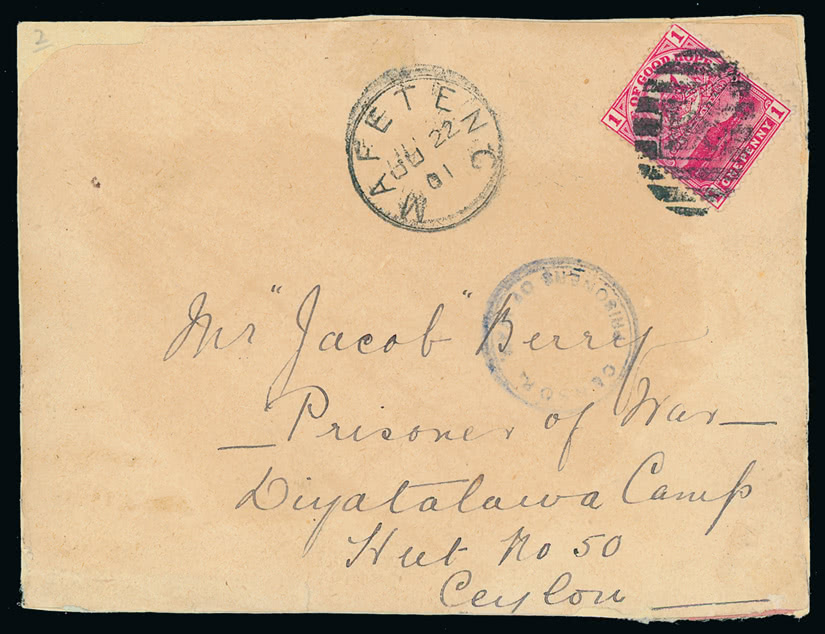 2
1 OF GOOD HOPE
1 ONE PENNY 1
MAFETENG
JU 22
01
PRISONERS OF
CENSOR
Mr "Jacob" Berry
— Prisoner of War —
Diyatalawa Camp
Hut No 50
Ceylon —